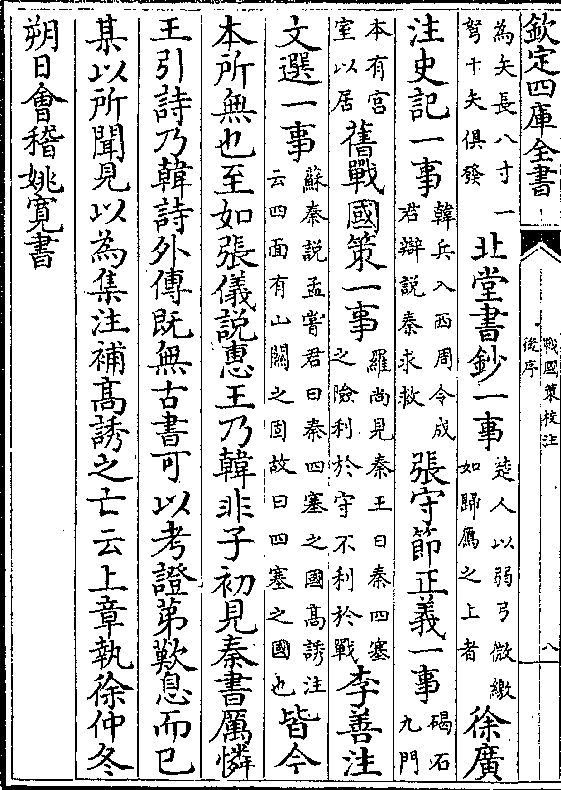 欽定四庫全書
戰國策校注
後序
八
為矢長八寸一
弩十矢俱發
北堂書鈔一事
楚人以弱弓微繳
如歸鴈之上者
徐廣
注史記一事
韓兵入西周令成
君辯說秦求救
張守節正義一事
碣石
九門
本有宮
室以居
舊戰國策一事
羅尚見秦王曰秦四塞
之險利於守不利於戰
李善注
文選一事
蘇秦說孟嘗君曰秦四塞之國髙誘注
云四面有山關之固故曰四塞之國也
皆今
本所無也至如張儀說惠王乃韓非子初見秦書厲憐
王引詩乃韓詩外傳既無古書可以考證第歎息而已
某以所聞見以為集注補髙誘之亡云上章執徐仲冬
朔日會稽姚寛書